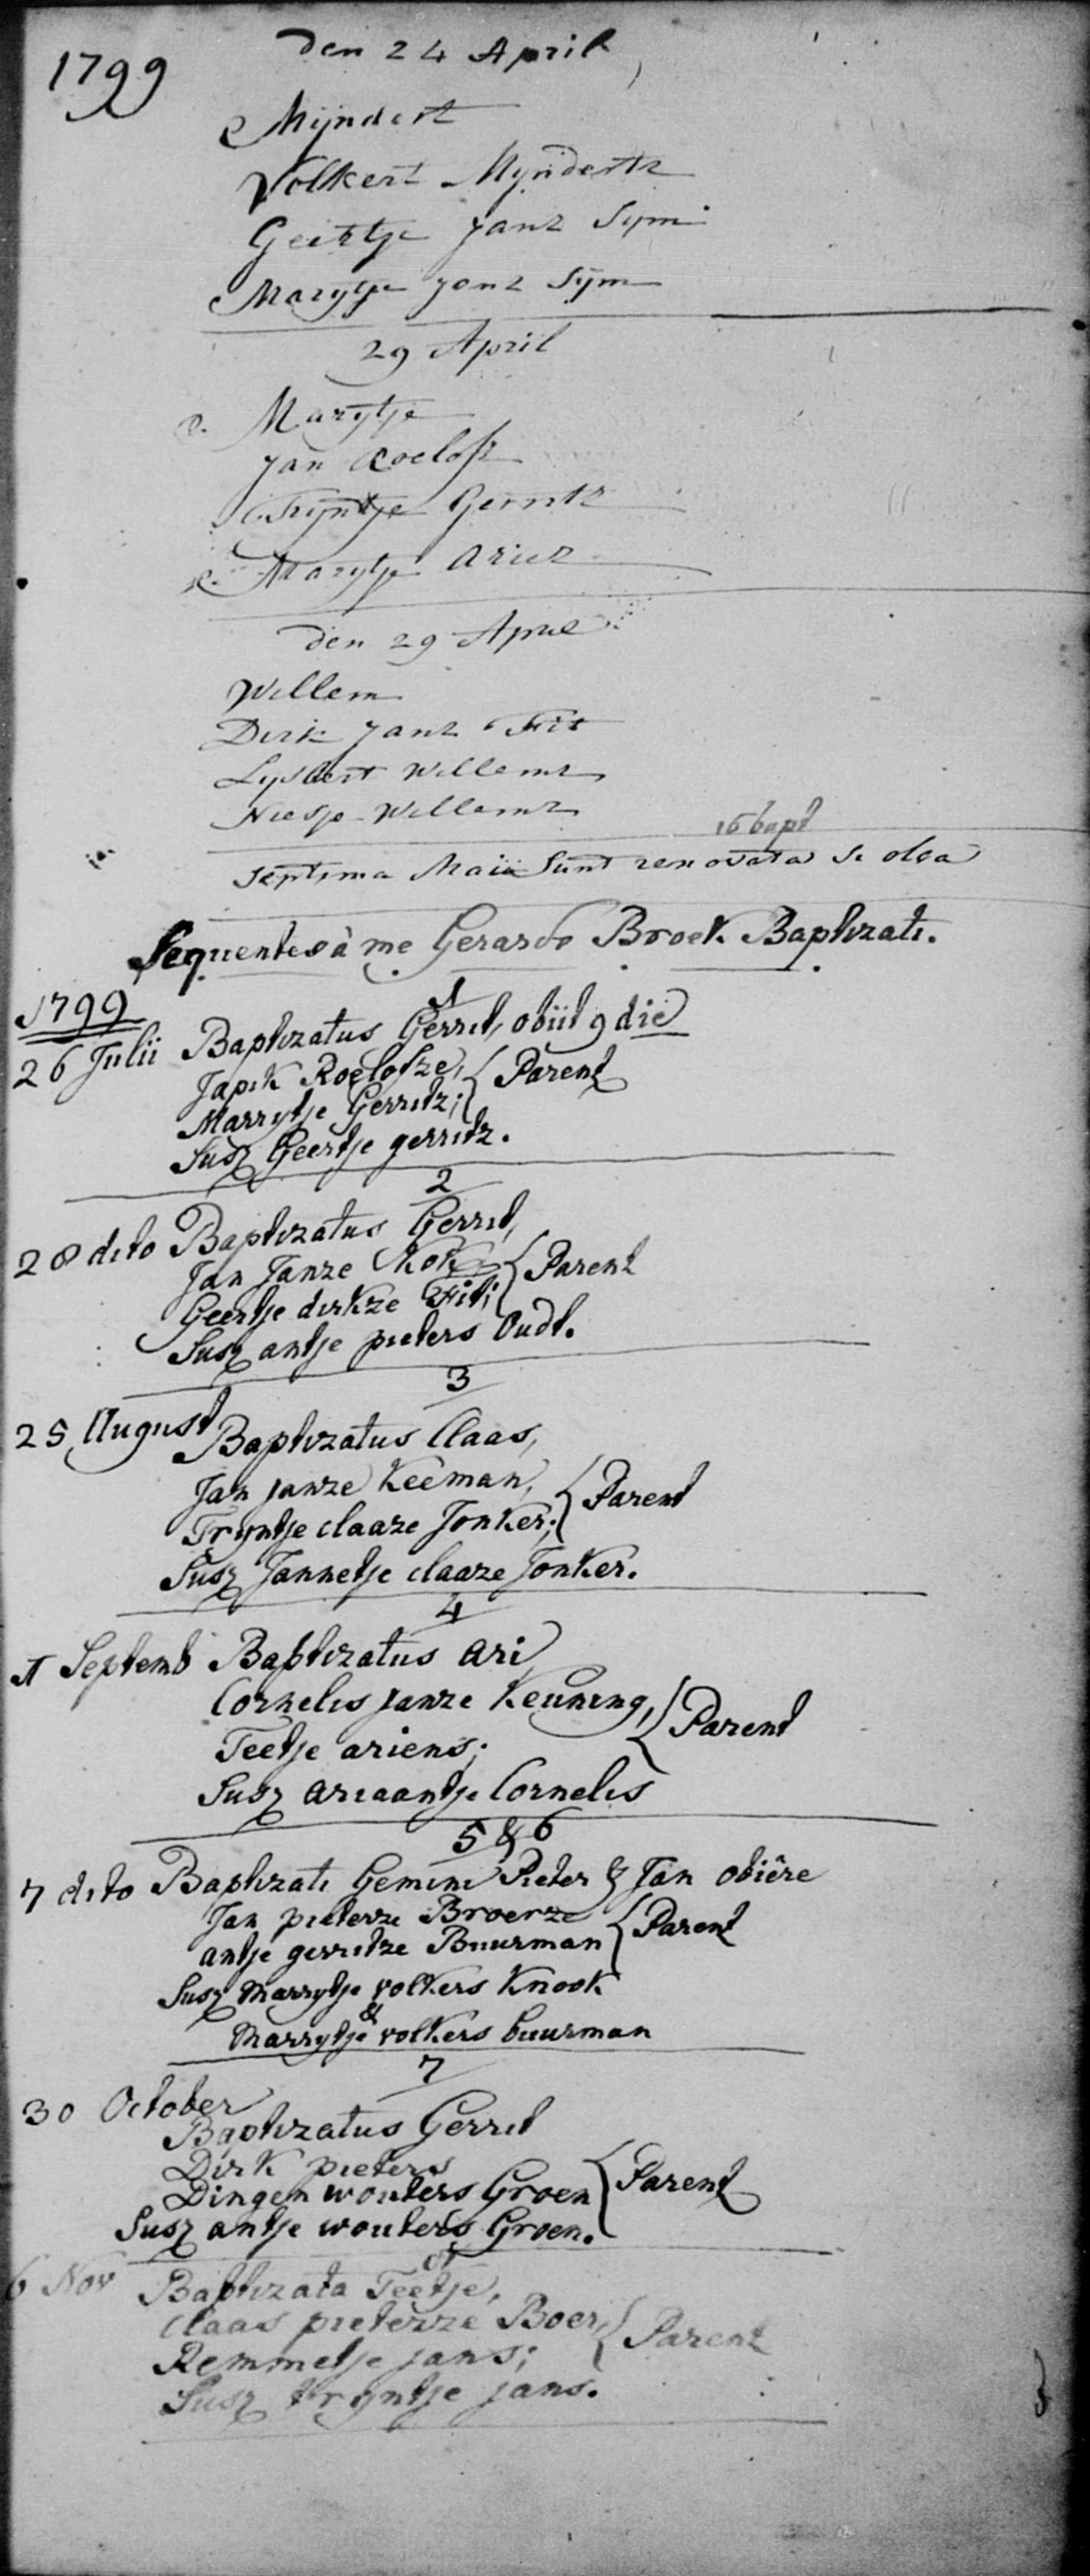 1799
den 24 April
Mijndert
Volkert Mijnderts
Geertje Janz Sijm
Marytje Janz Sijm
29 April
Marytje
Jan Roelofs
Tryntje Gerritz
Marytje Ariez
den 29 April
Willem
Dirk Janz Fit
Lysbert Willemz
Niesje Willemz
16 bapt
Septima Maii Sunt renovata S. olea
Sequentes à me Gerardo Broek Baptizati.
1799
1
26 Julii Baptizatus Gerrit, obiit 9 die
Japik Roelofze,
Marrytje Gerritz; } Parent
Susz Geertje gerritz.
2
28 dito Baptizatus Gerrit,
Jan Janze Kok
Geertje dirkze Fit; } Parent
Susz antje pieters Oudt.
3
25 August Baptizatus Claas,
Jan janze Keeman, } Parent
Tryntje claaze Jonker;
Susz Jannetje claaze Jonker.
4
1 Septemb Baptizatus Ari
Cornelis janze Keuning, } Parent
Teetje ariens;
Susz Ariaantje Cornelis
5 & 6
7 dito Baptizati Gemini Pieter & Jan obiêre
Jan pieterze Broerze } Parent
antje gerritze Buurman
Susz Marrytje volkers Knook
&
Marrytje volkers buurman
7
30 October
Baptizatus Gerrit
Dirk pieters } Parent
Dingen wouters Groen
Susz antje wouters Groen.
8
6 Nov Baptizata Teetje,
Claas pieterze Boer, } Parent
Remmetje jans;
Susz tryntje jans.